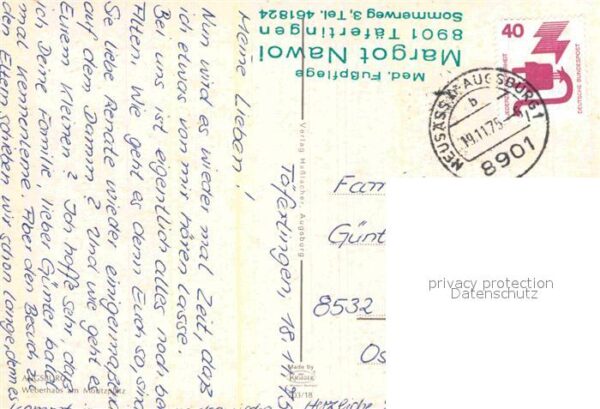 Med. Fußpflege
Margot Nawoi
8901 Täfertingen
Sommerweg 3, Tel. 461824
40
DEUTSCHE BUNDESPOST
NEUSÄSS
AUGSBURG 1
b
19.11.75
8901
Täfertingen, 18.11.
Meine Lieben!
Nun wird es wieder mal Zeit, daß
ich etwas von mir hören lasse.
Bei uns ist eigentlich alles noch beim
Alten. Wie geht es denn Euch so, sind
Sie liebe Renate wieder einigermaßen
auf dem Damm? Und wie geht es
Eurem Kleinen? Ich hoffe sehr, daß
ich Deine Familie, lieber Günter bald
mal kennenlerne. Aber den Besuch zu
den Eltern schieben wir schon lange, denn es
Herzliche
Verlag Maßtischer, Augsburg
Fam
Günt
8532
Os
privacy protection
Datenschutz
Made by
KRÜGER
03/18
AUGSBURG
Weberhaus am Moritzplatz